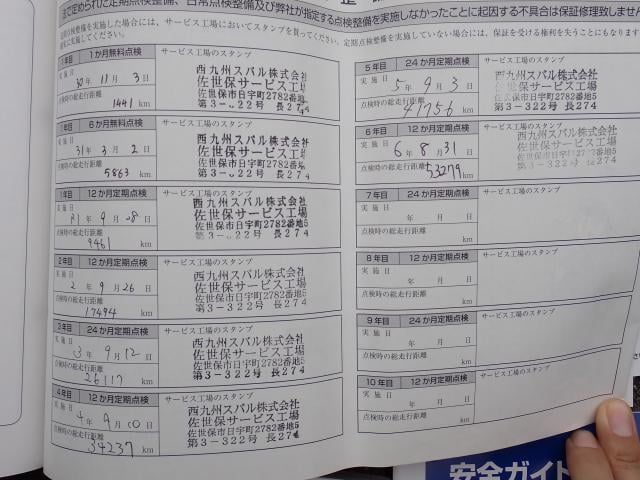 法で定められた定期点検整備、日常点検整備及び弊社が指定する点検整備を実施しなかったことに起因する不具合は保証修理致しません
定期点検整備を実施した場合には、サービス工場においてスタンプを貰ってください。定期点検整備を実施していない場合には、保証を受ける権利を失うことになります
確実に実施してください。
1年目 1か月無料点検 サービス工場のスタンプ
実施日 30年 11月 3日
点検時の総走行距離
1441 km
西九州スバル株式会社
佐世保サービス工場
佐世保市日宇町2782番地5
1年目 6か月無料点検 サービス工場のスタンプ
実施日 31年 3月 2日
点検時の総走行距離
5863 km
西九州スバル株式会社
佐世保サービス工場
佐世保市日宇町2782番地5
1年目 12か月定期点検 サービス工場のスタンプ
実施日 R1年 9月 28日
点検時の総走行距離
9461 km
西九州スバル株式会社
佐世保サービス工場
佐世保市日宇町2782番地5
2年目 12か月定期点検 サービス工場のスタンプ
実施日 2年 9月 26日
点検時の総走行距離
17494 km
西九州スバル株式会社
佐世保サービス工場
佐世保市日宇町2782番地5
第3-322号 長274
3年目 24か月定期点検 サービス工場のスタンプ
実施日 3年 9月 12日
点検時の総走行距離
26117 km
西九州スバル株式会社
佐世保サービス工場
佐世保市日宇町2782番地5
第3-322号 長274
4年目 12か月定期点検 サービス工場のスタンプ
実施日 4年 9月 10日
点検時の総走行距離
34237 km
西九州スバル株式会社
佐世保サービス工場
佐世保市日宇町2782番地5
第3-322号 長274
5年目 24か月定期点検 サービス工場のスタンプ
実施日 5年 9月 3日
点検時の総走行距離
41756 km
西九州スバル株式会社
佐世保サービス工場
佐世保市日宇町2782番地5
第3-322号 長274
6年目 12か月定期点検 サービス工場のスタンプ
実施日 6年 8月 31日
点検時の総走行距離
53279 km
西九州スバル株式会社
佐世保サービス工場
佐世保市日宇町2782番地5
第3-322号 長274
7年目 24か月定期点検 サービス工場のスタンプ
実施日 年 月 日
点検時の総走行距離
km
8年目 12か月定期点検 サービス工場のスタンプ
実施日 年 月 日
点検時の総走行距離
km
9年目 24か月定期点検 サービス工場のスタンプ
実施日 年 月 日
点検時の総走行距離
km
10年目 12か月定期点検 サービス工場のスタンプ
実施日 年 月 日
点検時の総走行距離
km
安全ガイド